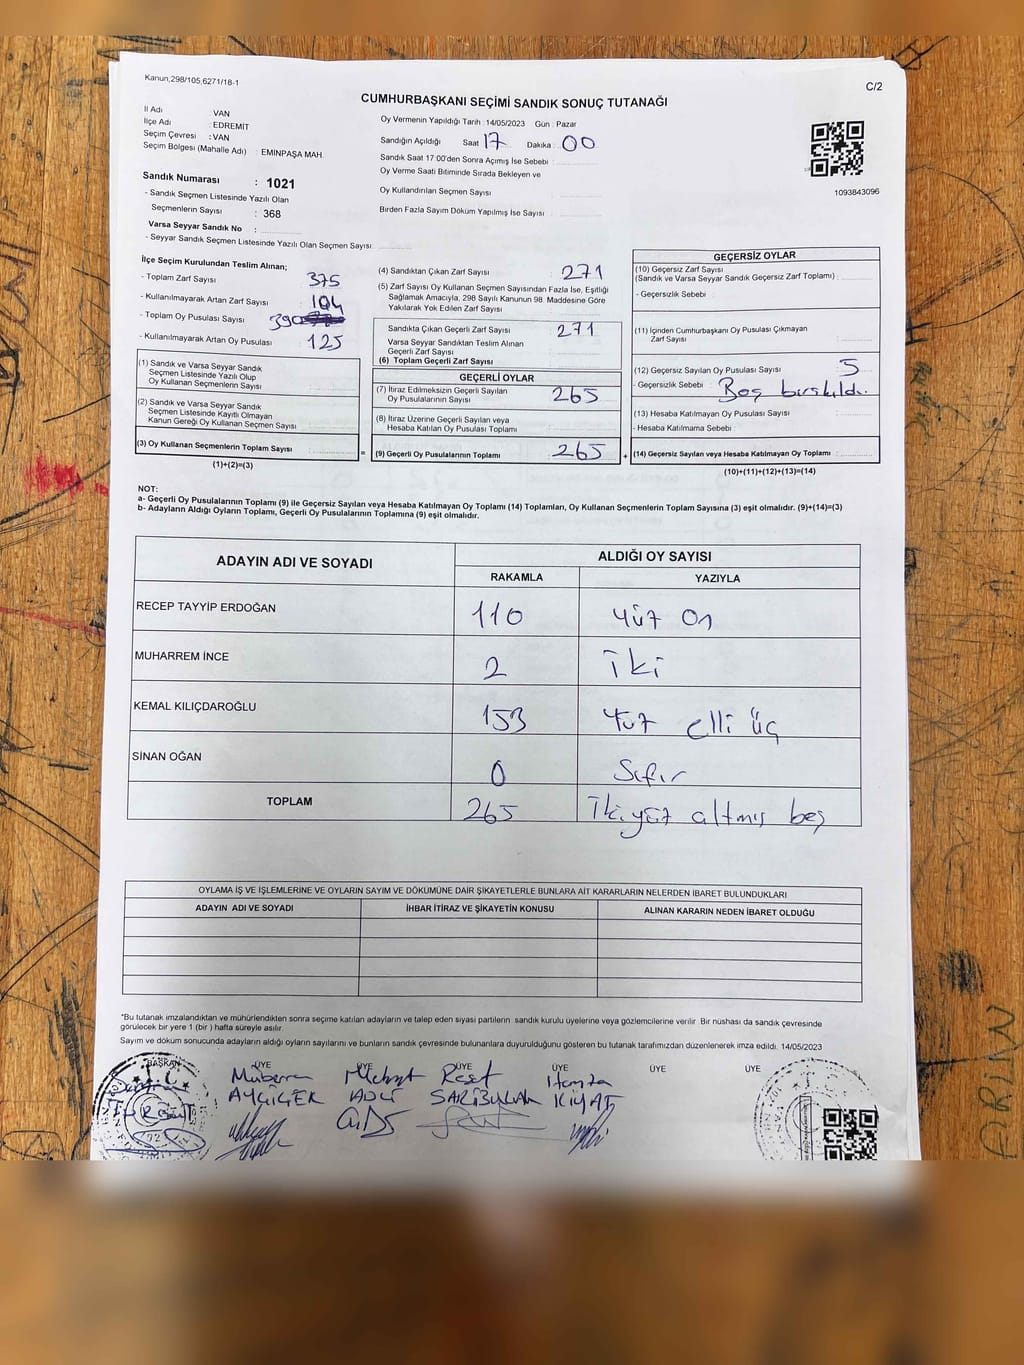 Kanun,298/105,6271/18-1
C/2
CUMHURBAŞKANI SEÇİMİ SANDIK SONUÇ TUTANAĞI
İl Adı : VAN
İlçe Adı : EDREMIT
Seçim Çevresi : VAN
Seçim Bölgesi (Mahalle Adı) : EMINPAŞA MAH.
Sandık Numarası : 1021
- Sandık Seçmen Listesinde Yazılı Olan
Seçmenlerin Sayısı : 368
Varsa Seyyar Sandık No :
- Seyyar Sandık Seçmen Listesinde Yazılı Olan Seçmen Sayısı:
Oy Vermenin Yapıldığı Tarih : 14/05/2023 Gün : Pazar
Sandığın Açıldığı Saat 17 Dakika : 00
Sandık Saat 17 00'den Sonra Açımış İse Sebebi :
Oy Verme Saati Bitiminde Sırada Bekleyen ve
Oy Kullandırılan Seçmen Sayısı :
Birden Fazla Sayım Döküm Yapılmış İse Sayısı :
1093843096
İlçe Seçim Kurulundan Teslim Alınan;
- Toplam Zarf Sayısı : 375
- Kullanılmayarak Artan Zarf Sayısı : 104
- Toplam Oy Pusulası Sayısı : 390
- Kullanılmayarak Artan Oy Pusulası : 125
(1) Sandık ve Varsa Seyyar Sandık
Seçmen Listesinde Yazılı Olup
Oy Kullanan Seçmenlerin Sayısı :
(2) Sandık ve Varsa Seyyar Sandık
Seçmen Listesinde Kayıtlı Olmayan
Kanun Gereği Oy Kullanan Seçmen Sayısı :
(3) Oy Kullanan Seçmenlerin Toplam Sayısı :
(1)+(2)=(3)
=
(4) Sandıktan Çıkan Zarf Sayısı : 271
(5) Zarf Sayısı Oy Kullanan Seçmen Sayısından Fazla İse, Eşitliği
Sağlamak Amacıyla, 298 Sayılı Kanunun 98. Maddesine Göre
Yakılarak Yok Edilen Zarf Sayısı :
Sandıkta Çıkan Geçerli Zarf Sayısı : 271
Varsa Seyyar Sandıktan Teslim Alınan
Geçerli Zarf Sayısı :
(6) Toplam Geçerli Zarf Sayısı :
GEÇERLİ OYLAR
(7) İtiraz Edilmeksizin Geçerli Sayılan
Oy Pusulalarının Sayısı : 265
(8) İtiraz Üzerine Geçerli Sayılan veya
Hesaba Katılan Oy Pusulası Toplamı :
(9) Geçerli Oy Pusulalarının Toplamı : 265
+
GEÇERSİZ OYLAR
(10) Geçersiz Zarf Sayısı
(Sandık ve Varsa Seyyar Sandık Geçersiz Zarf Toplamı) :
- Geçersizlik Sebebi :
(11) İçinden Cumhurbaşkanı Oy Pusulası Çıkmayan
Zarf Sayısı :
(12) Geçersiz Sayılan Oy Pusulası Sayısı : 5
- Geçersizlik Sebebi : Boş bırakıldı.
(13) Hesaba Katılmayan Oy Pusulası Sayısı :
- Hesaba Katılmama Sebebi :
(14) Geçersiz Sayılan veya Hesaba Katılmayan Oy Toplamı :
(10)+(11)+(12)+(13)=(14)
NOT:
a- Geçerli Oy Pusulalarının Toplamı (9) ile Geçersiz Sayılan veya Hesaba Katılmayan Oy Toplamı (14) Toplamları, Oy Kullanan Seçmenlerin Toplam Sayısına (3) eşit olmalıdır. (9)+(14)=(3)
b- Adayların Aldığı Oyların Toplamı, Geçerli Oy Pusulalarının Toplamına (9) eşit olmalıdır.
ADAYIN ADI VE SOYADI ALDIĞI OY SAYISI
RAKAMLA YAZIYLA
RECEP TAYYİP ERDOĞAN 110 yüz on
MUHARREM İNCE 2 iki
KEMAL KILIÇDAROĞLU 153 yüz elli üç
SİNAN OĞAN 0 Sıfır
TOPLAM 265 İkiyüz altmış beş
OYLAMA İŞ VE İŞLEMLERİNE VE OYLARIN SAYIM VE DÖKÜMÜNE DAİR ŞİKAYETLERLE BUNLARA AİT KARARLARIN NELERDEN İBARET BULUNDUKLARI
ADAYIN ADI VE SOYADI İHBAR İTİRAZ VE ŞİKAYETİN KONUSU ALINAN KARARIN NEDEN İBARET OLDUĞU
*Bu tutanak imzalandıktan ve mühürlendikten sonra seçime katılan adayların ve talep eden siyasi partilerin sandık kurulu üyelerine veya gözlemcilerine verilir. Bir nüshası da sandık çevresinde
görülecek bir yere 1 (bir ) hafta süreyle asılır.
Sayım ve döküm sonucunda adayların aldığı oyların sayılarını ve bunların sandık çevresinde bulunanlara duyurulduğunu gösteren bu tutanak tarafımızdan düzenlenerek imza edildi. 14/05/2023
BAŞKAN ÜYE ÜYE ÜYE ÜYE ÜYE ÜYE
Müberra Mehmet Reşit Hamza
SARİBULAK